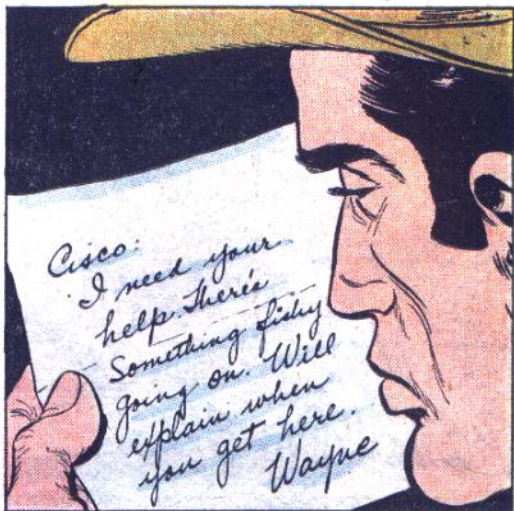 Cisco:
I need your
help. There's
Something fishy
going on. Will
explain when
you get here.
Wayne